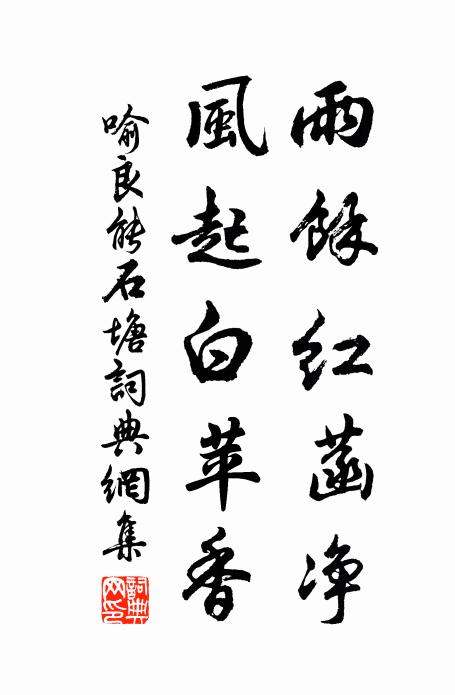 雨餘紅菡淨
風起白苹香
喻良能石塘詞典網集
詞典網印